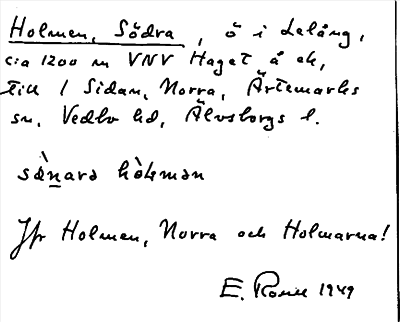 Holmen, Södra, ö i Lelång,
cia 1200 m VNV Haget å ek,
till / Sidan, Norra, Ärtemarks
sn, Vedbo hd, Älvsborgs l.
sæ̀nara hòlman
Jfr Holmen, Norra och Holmarna!
E. Rosell 1949